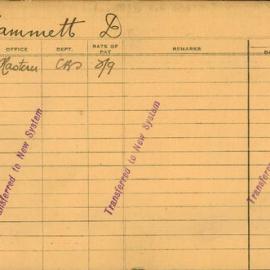 ammett D
OFFICE DEPT. RATE OF PAY REMARKS
2/9
Transferred to New System
Transferred to New System
Transferred